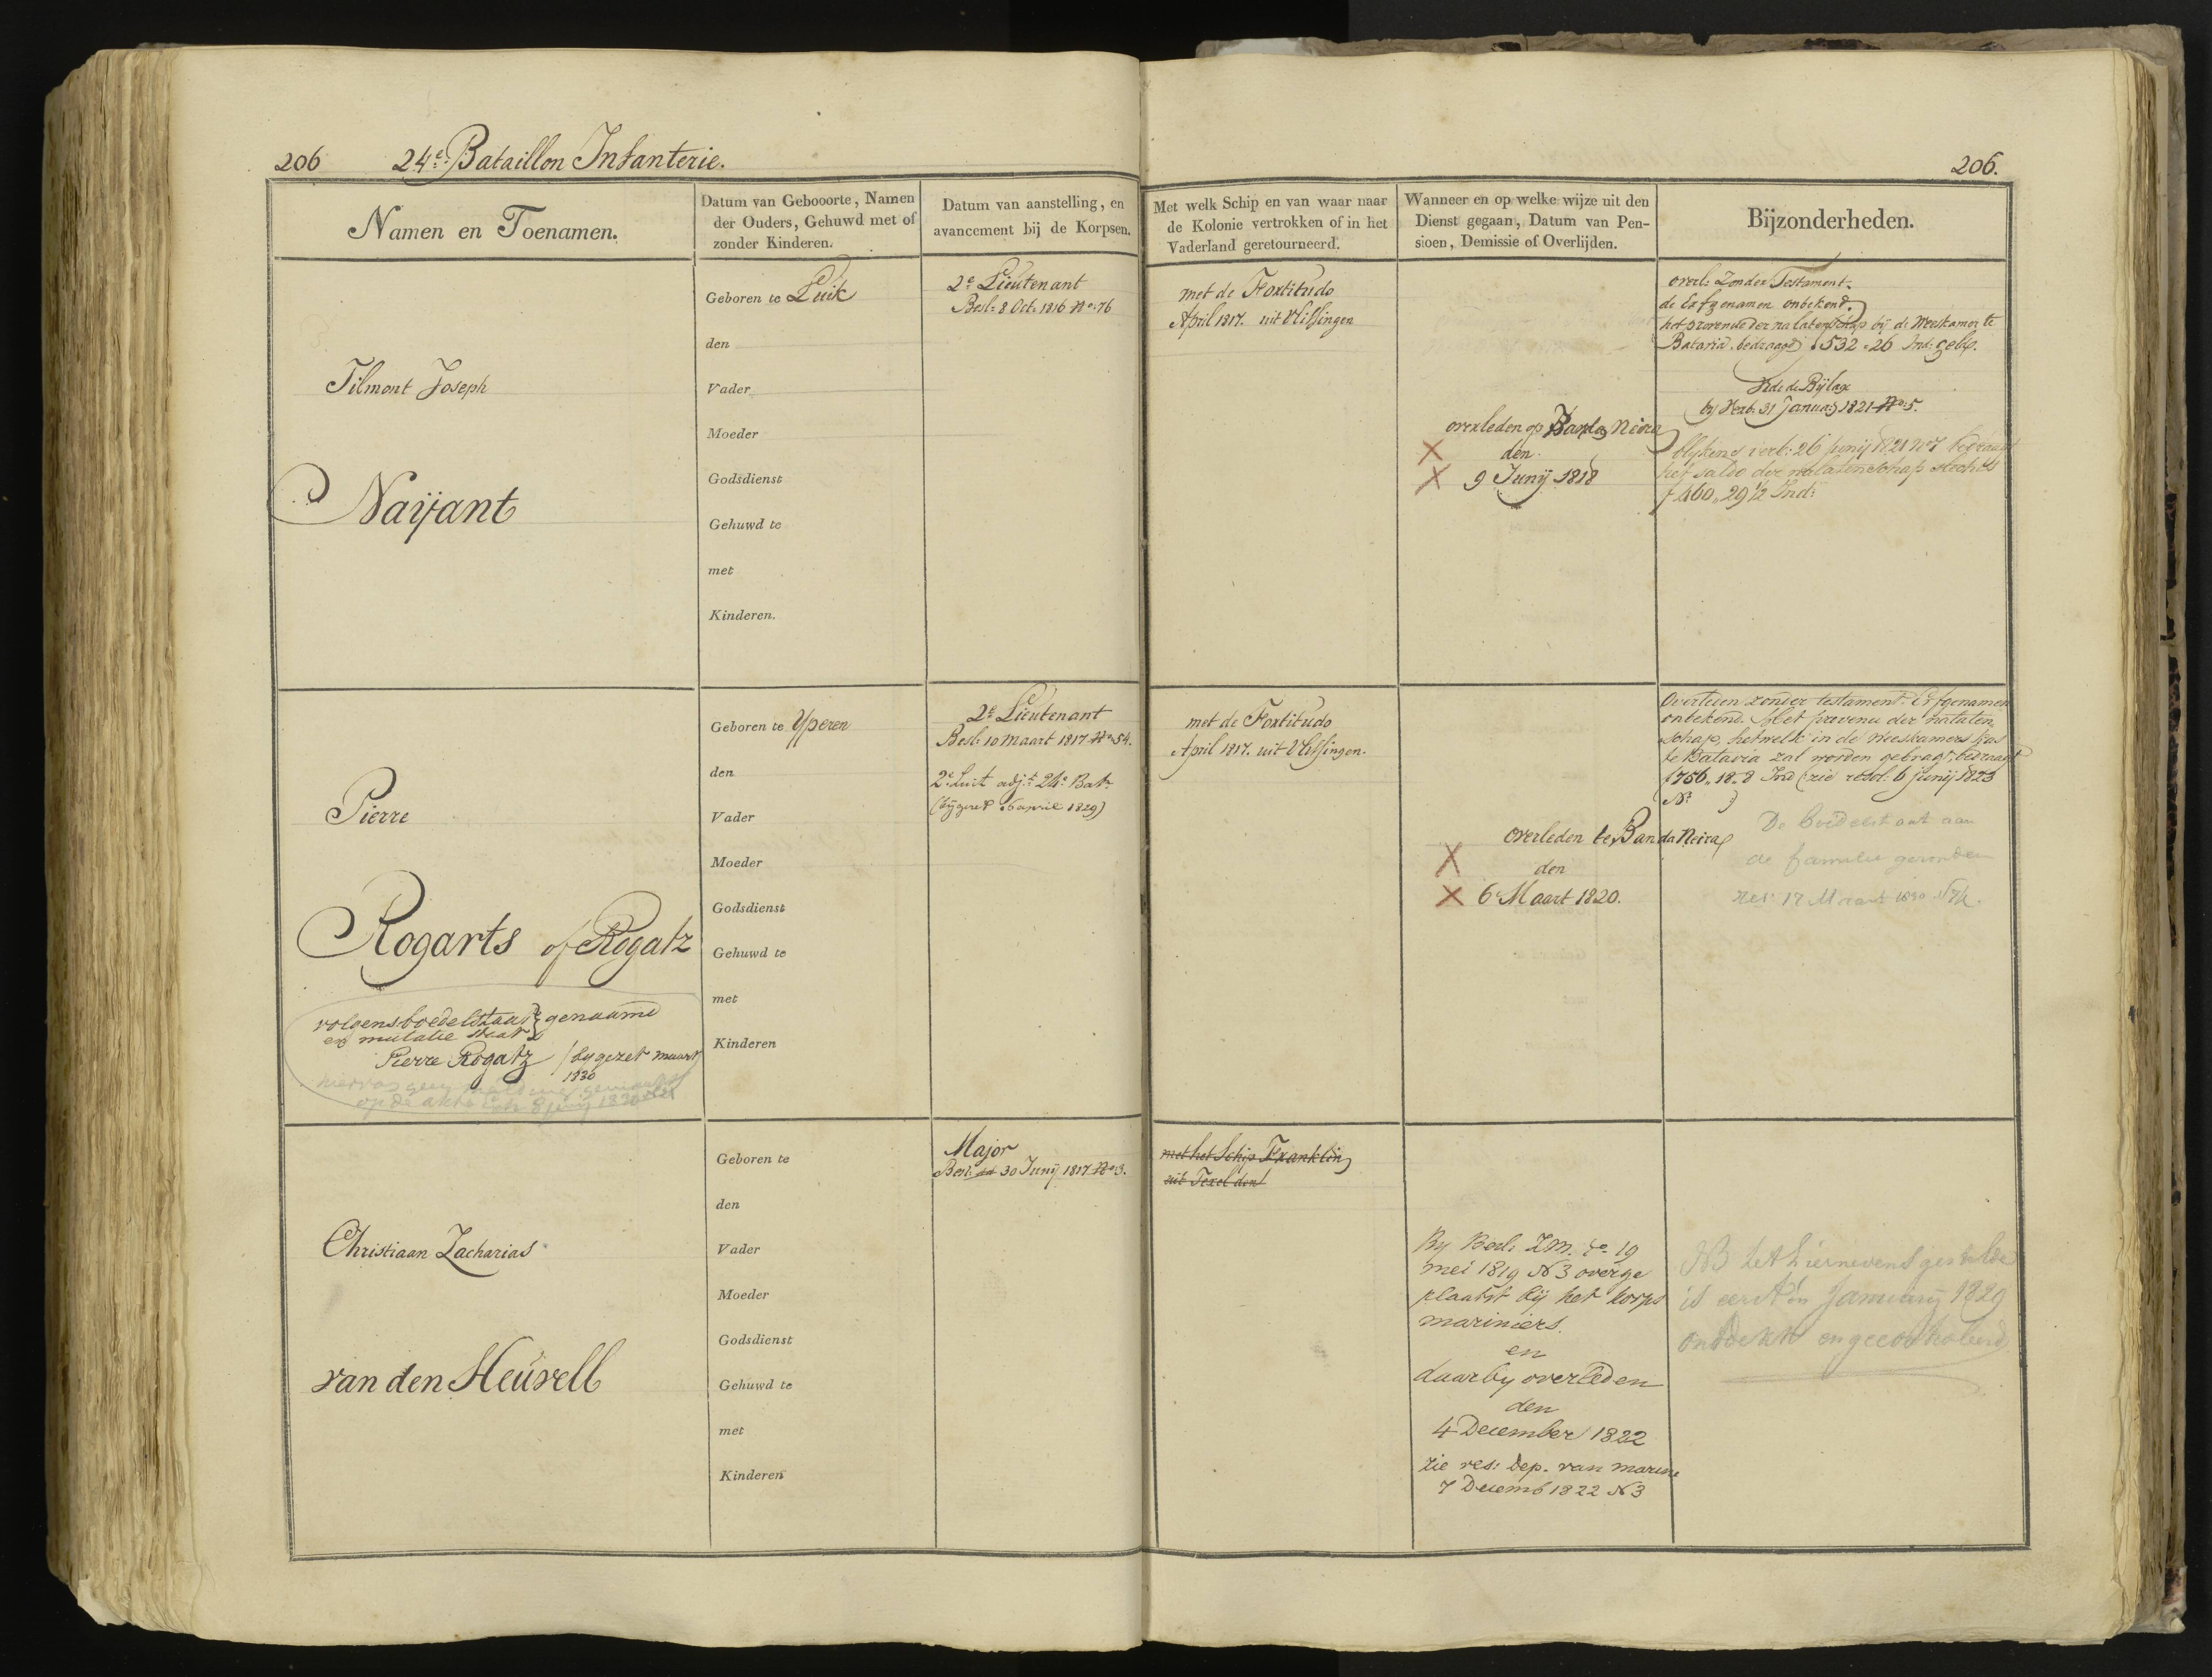 206 24e Bataillon Infanterie.
206.
Namen en Toenamen.
Datum van Gebooorte, Namen
der Ouders, Gehuwd met of
zonder Kinderen.
Datum van aanstelling, en
avancement bij de Korpsen.
Met welk Schip en van waar naar
de Kolonie vertrokken of in het
Vaderland geretourneerd.
Wanneer en op welke wijze uit den
Dienst gegaan, Datum van Pen-
sioen, Demissie of Overlijden.
Bijzonderheden.
Tilmont Joseph
Naijant
Geboren te Luik
den
Vader
Moeder
Godsdienst
Gehuwd te
met
Kinderen.
2e Lieutenant
Besl: 8 Oct: 1816 No: 76
met de Fortitudo
April 1817. uit Vlissingen
overleden op Banda Neira
den
9 Junij 1818
overl: Zonder Testament.
de Erfgenamen onbekend.
het provenu der nalatenschap bij de Weeskamer te
Batavia bedraagt f 532 = 26 Ind: geld.
Vide de Bijlage
by Verb: 31 Januarij 1821 No: 5.
blykens verb: 26 junij 1821 No 7 bedraagt
het saldo der nalatenschap slechts
f 460,, 29 1/2 Ind:
Pierre
Rogarts of Rogatz
volgens boedelstaat genaamd
en mutatie staat
Pierre Rogatz / bygezet maart
1830
hiervan geen melding gemaakt
op de akte 8 junij 1830
Geboren te Yperen
den
Vader
Moeder
Godsdienst
Gehuwd te
met
Kinderen
2e Lieutenant
Besl: 10 Maart 1817 No: 54.
2e Luit adjt 24e Bat:
(bygezet 16 april 1829)
met de Fortitudo
April 1817. uit Vlissingen.
overleden te Banda Neira
den
6 Maart 1820.
Overleden zonder testament. Erfgenamen
onbekend. Het provenu der nalaten,
schap, hetwelk in de Weeskamers kas
te Batavia zal worden gebragt, bedraagt
f 756,, 18,, 8 Ind (zie resol: 6 junij 1823
No )
De boedelstaat aan
de familie gezonden
res: 17 Maart 1830
Christiaan Zacharias
van den Heuvell
Geboren te
den
Vader
Moeder
Godsdienst
Gehuwd te
met
Kinderen
Major
Besl: dd 30 Junij 1817 No: 3.
met het Schip Franklin
uit Texel den
By Besl: Z.M. do 19
mei 1819 N 3 overge
plaatst bij het korps
mariniers.
en
daarby overleden
den
4 December 1822
zie res: Dep. van marine
7 Decemb 1822 N 3
NB het hiernevens gestelde
is eerst in January 1829
ontdekt en